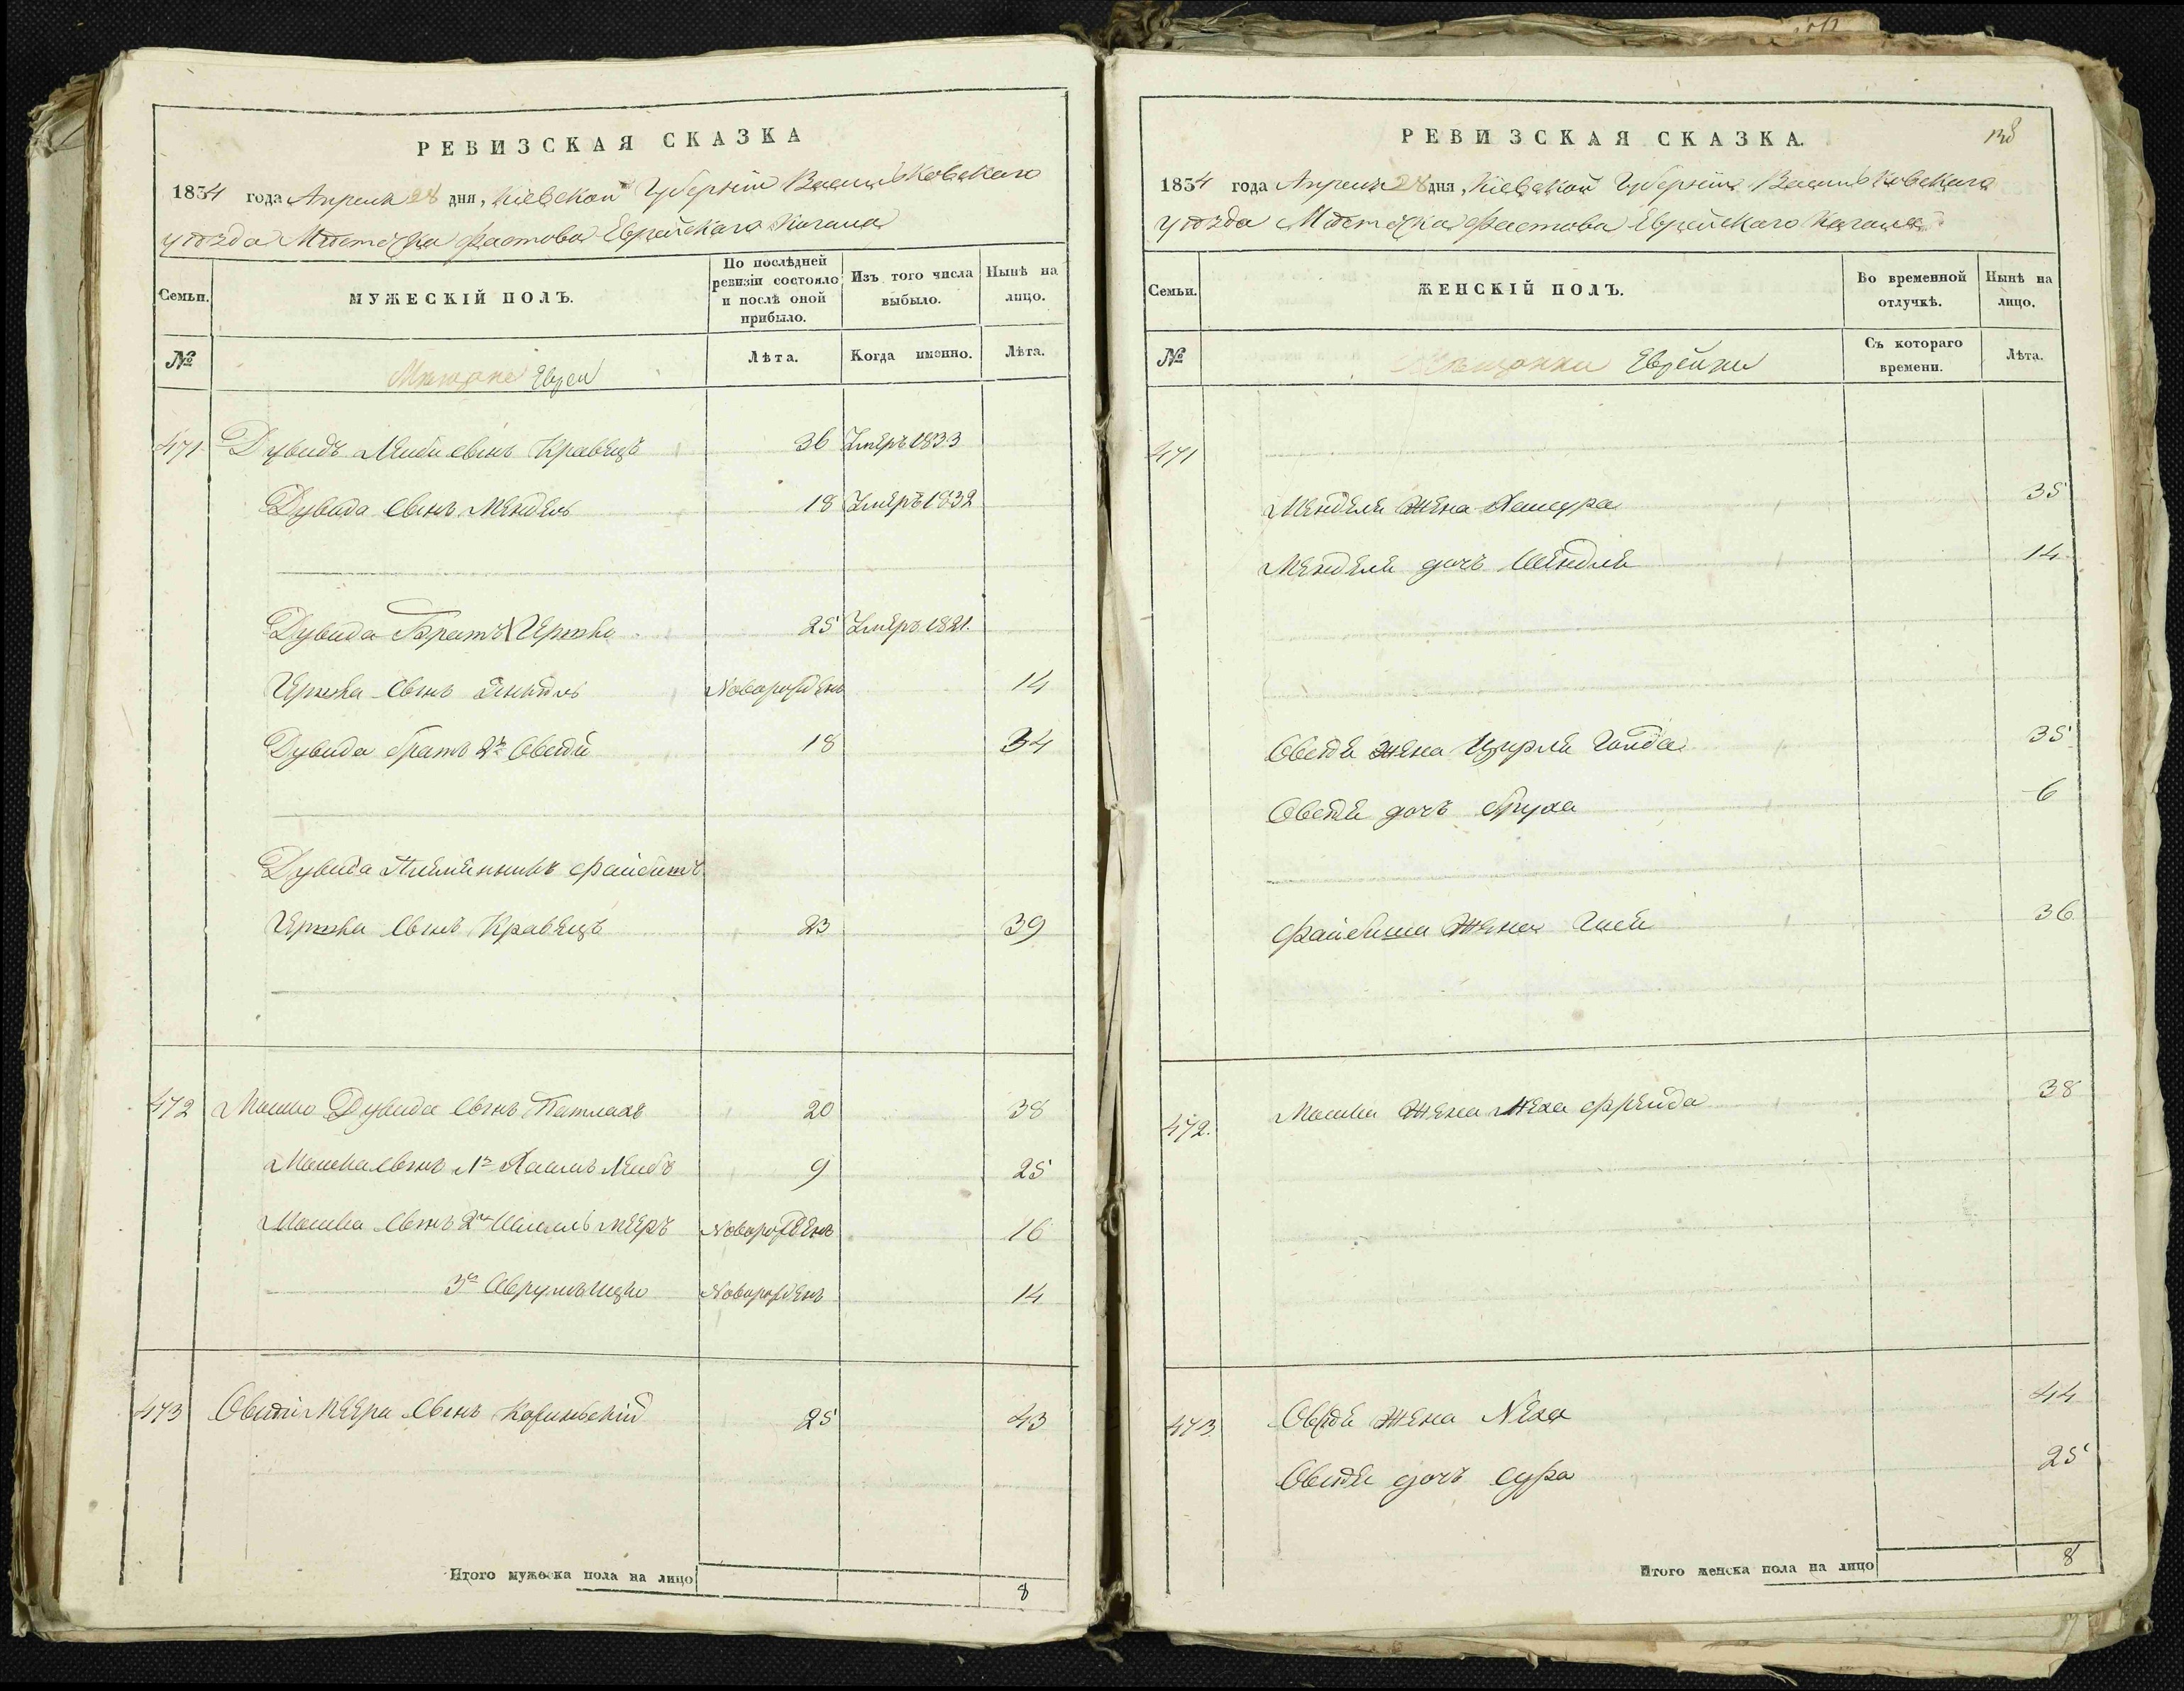 РЕВИЗСКАЯ СКАЗКА
1834 года Апреля 28 дня, Кіевской Губерніи Васильковскаго
уѣзда Мѣстѣчка Фастова Еврейскаго Кагала
Семьи.
МУЖЕСКІЙ ПОЛЪ.
По послѣдней ревизіи состояло и послѣ оной прибыло.
Изъ того числа выбыло.
Нынѣ на лицо.
№
Мещане Евреи
Лѣта.
Когда именно.
Лѣта.
471 Дувидъ Лейби сынъ Кравецъ 36 Умеръ 1833
Дувида сынъ Мендель 18 Умеръ 1832
Дувида Братъ Іершко 25 Умеръ 1821.
Іершка сынъ Новорожденъ 14
Дувида братъ 2й Овсѣй 18 34
Дувида Племенникъ Файбишъ
Іершка сынъ Кравецъ 23 39
472 Мошко Дувида сынъ Патлахъ 20 38
Мошка сынъ 1й Хаимъ Лейбъ 9 25
Мошка сынъ 2й Шмуль Мееръ Новорожденъ 16
3й Аврумъ Ицко Новорожденъ 14
473 Овсѣй Меера сынъ 25 43
Итого мужеска пола на лицо 8
РЕВИЗСКАЯ СКАЗКА.
138
1834 года Апреля 28 дня, Кіевской Губерніи Васильковскаго
уѣзда Мѣстѣчка Фастова Еврейскаго Кагала
Семьи.
ЖЕНСКІЙ ПОЛЪ.
Во временной отлучкѣ.
Нынѣ на лицо.
№
Мещанки Еврейки
Съ котораго времени.
Лѣта.
471
Менделя жена 35
Менделя дочь Шейндля 14
Овсѣя жена Цирля Голда 35
Овсѣя дочь Бруха 6
Файбиша жена 36
472. Мошка жена Неха Фрейда 38
473 Овсѣя жена Неха 44
Овсѣя дочь Сура 25
Итого женска пола на лицо 8